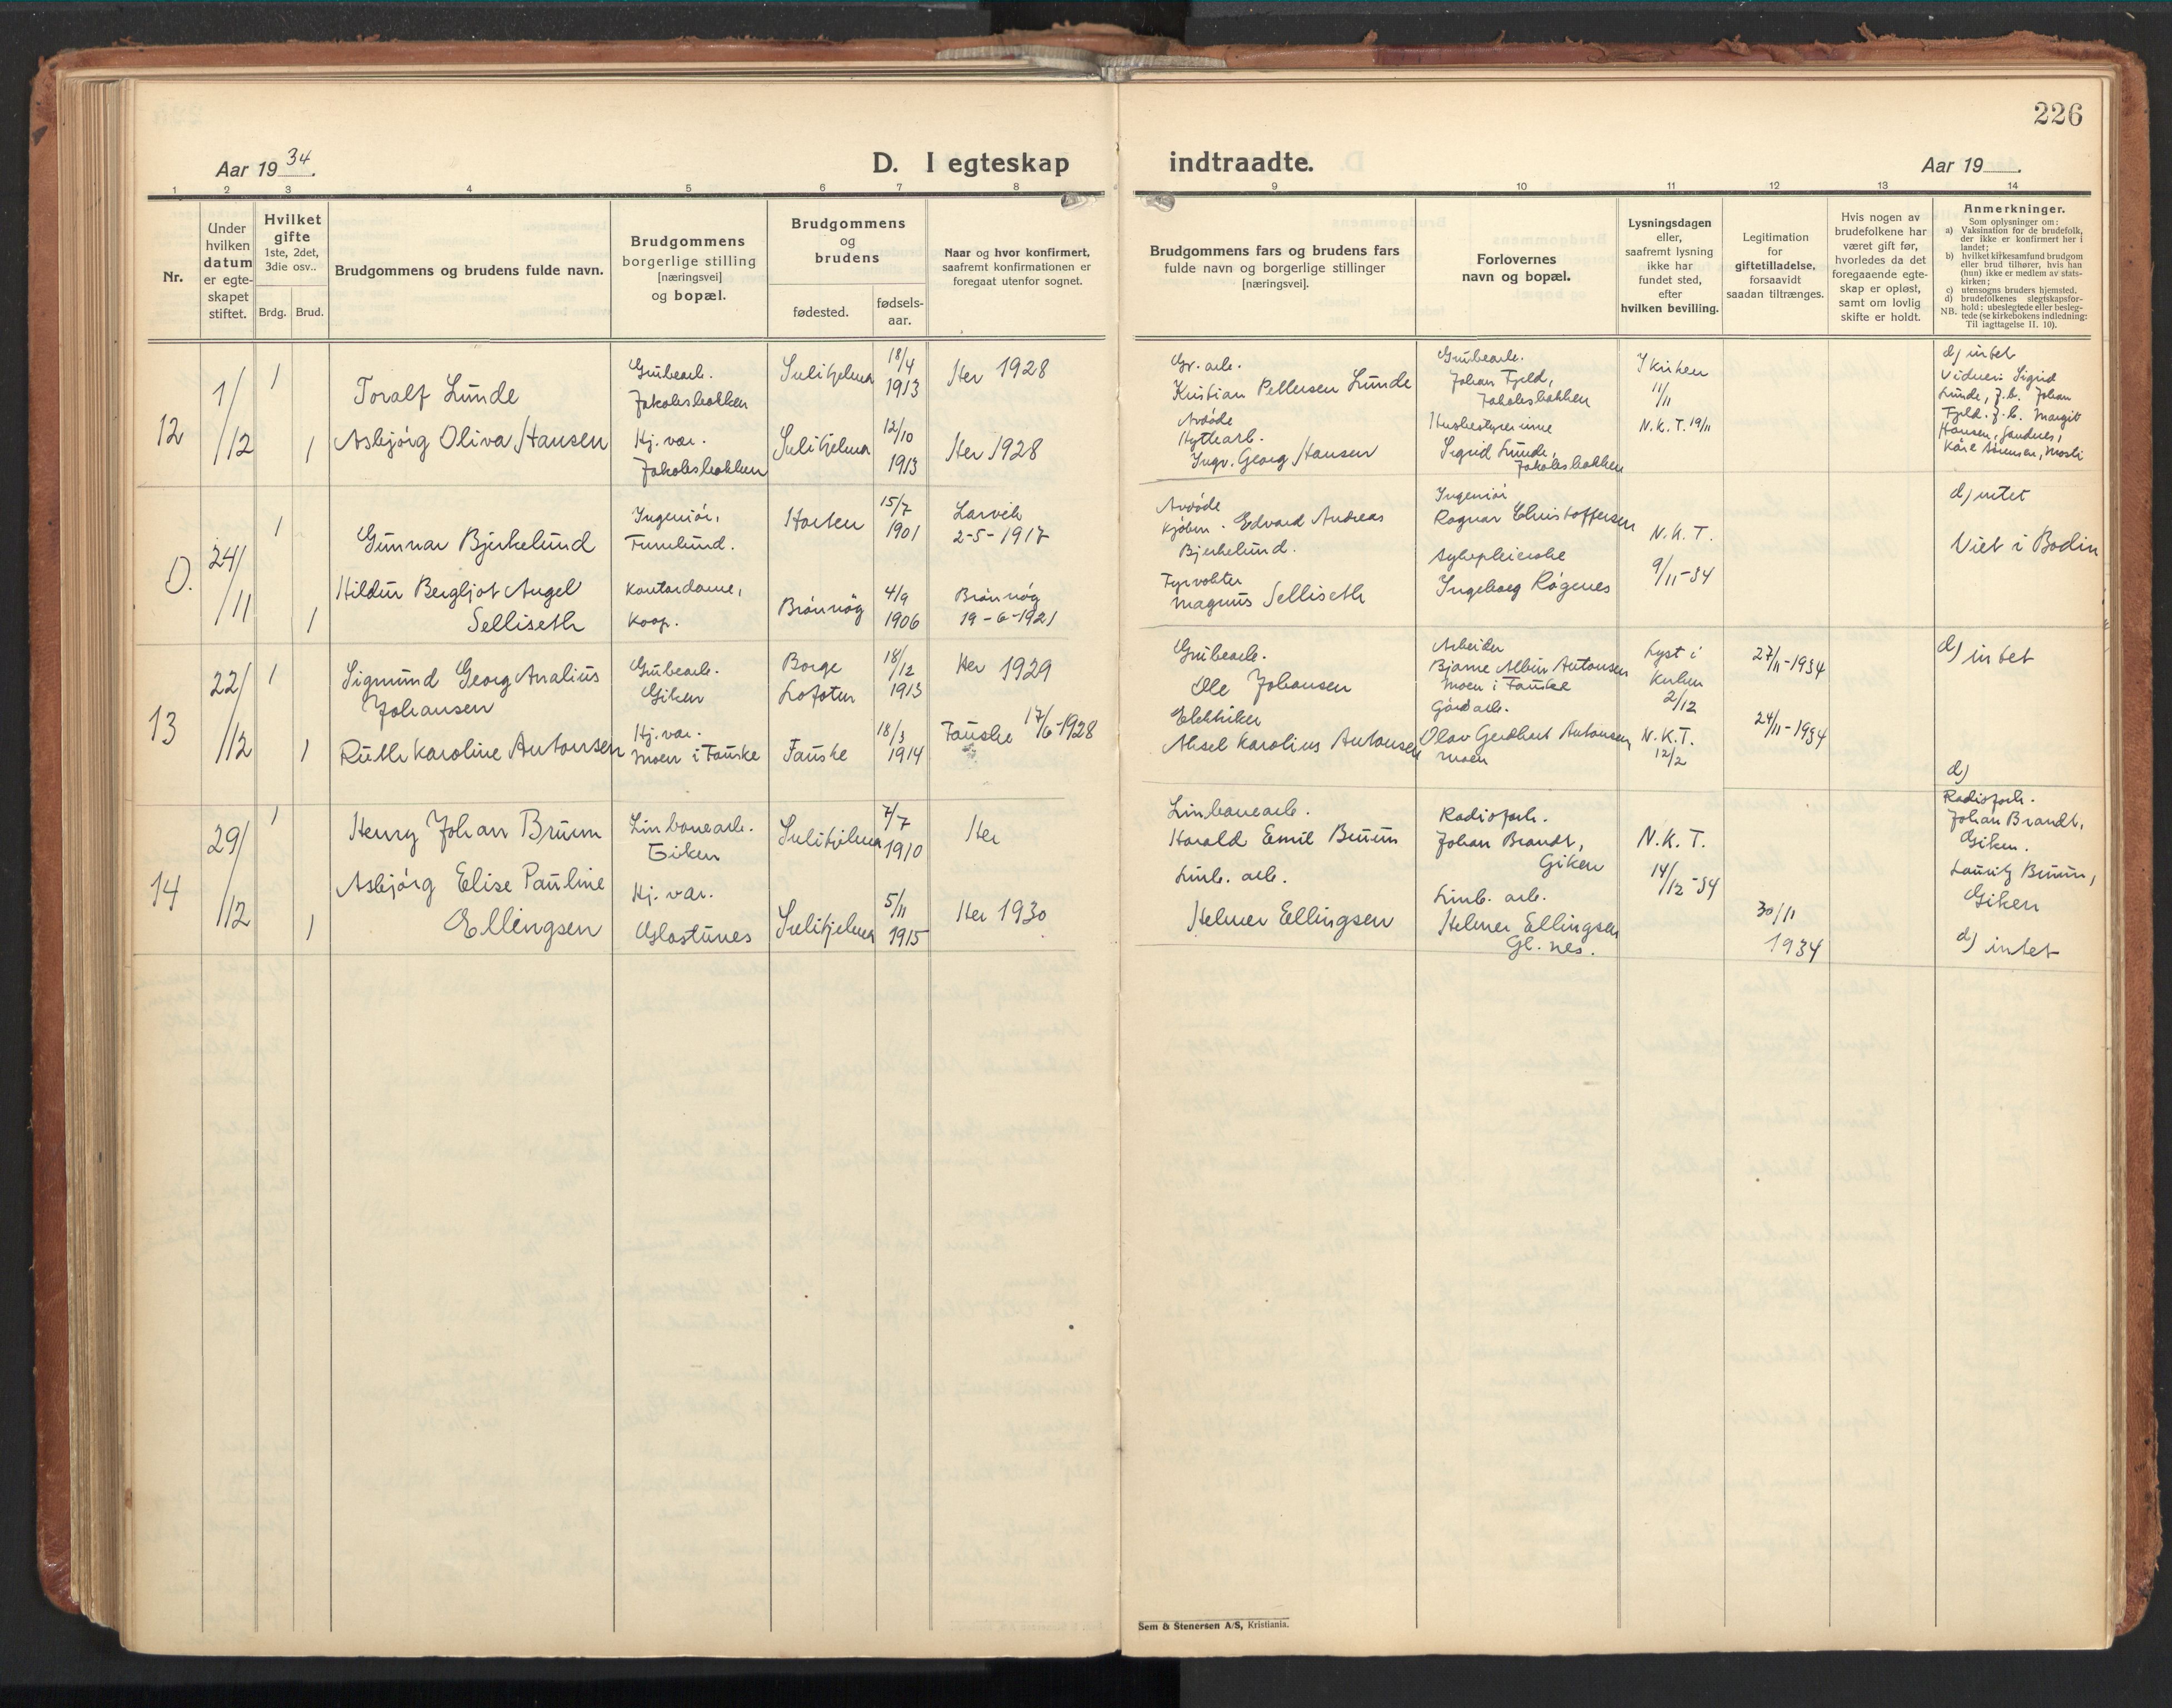 226
Aar 1934.
D. I egteskap
indtraadte.
Aar 19 .
1 2 3 4 5 6 7 8 9 10 11 12 13 14
Nr.
Under hvilken datum er egte- skapet stiftet.
Hvilket gifte
1ste, 2det, 3die osv..
Brdg. Brud.
Brudgommens og brudens fulde navn.
Brudgommens borgerlige stilling [næringsvei] og bopæl.
Brudgommens og brudens
fødested.
fødsels- aar.
Naar og hvor konfirmert, saafremt konfirmationen er foregaat utenfor sognet.
Brudgommens fars og brudens fars fulde navn og borgerlige stillinger [næringsvei].
Forlovernes navn og bopæl.
Lysningsdagen eller, saafremt lysning ikke har fundet sted, efter hvilken bevilling.
Legitimation for giftetilladelse, forsaavidt saadan tiltrænges.
Hvis nogen av brudefolkene har været gift før, hvorledes da det foregaaende egte- skap er opløst, samt om lovlig skifte er holdt.
Anmerkninger.
Som oplysninger om:
a) Vaksination for de brudefolk, der ikke er konfirmert her i landet;
b) hvilket kirkesamfund brudgom eller brud tilhører, hvis han (hun) ikke er medlem av stats- kirken;
c) utensogns bruders hjemsted.
d) brudefolkenes slegtskapsfor- hold: ubeslegtede eller besleg- tede (se kirkebokens indledning: Til iagttagelse II. 10).
NB.
12
1/12
1
Toralf Lunde
Grubearb.
Jakobsbakken
Sulitjelma
18/4
1913
Her 1928
Gr. arb.
Kristian Pettersen Lunde
Grubearb.
Johan Fjeld,
Jakobsbakken
I kirken
11/11
d) intet
Vidner: Sigrid
Lunde, J.b. Johan
Fjeld. J.b. Margit
Hansen, Sandnes,
1
Asbjørg Oliva Hansen
Hj. vær.
Jakobsbakken
Sulitjelma
12/10
1913
Her 1928
Avdøde
Hyttearb.
Ingv. Georg Hansen
Husbestyrerinne
Sigrid Lunde,
Jakobsbakken
N.K.T. 19/11
0.
24/11
1
Gunnar Bjerkelund
Ingeniør,
Furulund.
Horten
15/7
1901
Larvik
2-5-1917
Avdøde
Kjøbm. Edvard Andreas
Bjerkelund.
Ingeniør
Ragnar Christoffersen
N.K.T.
9/11-34
d) intet
Viet i Bodin
1
Hildur Bergljot Angel
Selliseth
Kontordame,
Koop.
Brønnøy
4/9
1906
Brønnøy
19-6-1921
Fyrvokter
Magnus Selliseth
Sykepleierske
Ingeborg Røgenes
13
22/12
1
Sigmund Georg Analius
Johansen
Grubearb.
Giken
Borge
Lofoten
18/12
1913
Her 1929
Grubearb.
Ole Johansen
Arbeider
Bjarne Albin Antonsen
Moen i Fauske
Lyst i
Kirken
2/12
27/11-1934
d) intet
1
Ruth Karoline Antonsen
Hj. vær.
Moen i Fauske
Fauske
18/3
1914
Fauske 17/6-1928
Elektriker
Aksel Karolius Antonsen
Gårdarb.
Olav Gerdhart Antonsen
Moen
N.K.T.
12/2
24/11-1934
14
29/12
1
Henry Johan Bruun
Linbanearb.
Giken
Sulitjelma
7/7
1910
Her
Linbanearb.
Harald Emil Bruun
Radioforh.
Johan Brandt,
Giken
N.K.T.
14/12-34
d)
Radioforh.
Johan Brandt,
Giken.
Lauritz Bruun,
Giken
1
Asbjørg Elise Pauline
Ellingsen
Hj. vær.
Glastunes
Sulitjelma
5/11
1915
Her 1930
Linb. arb.
Helmer Ellingsen
Linb. arb.
Helmer Ellingsen
Gl. nes.
30/11
1934
d) intet
Sem & Stenersen A/S, Kristiania.